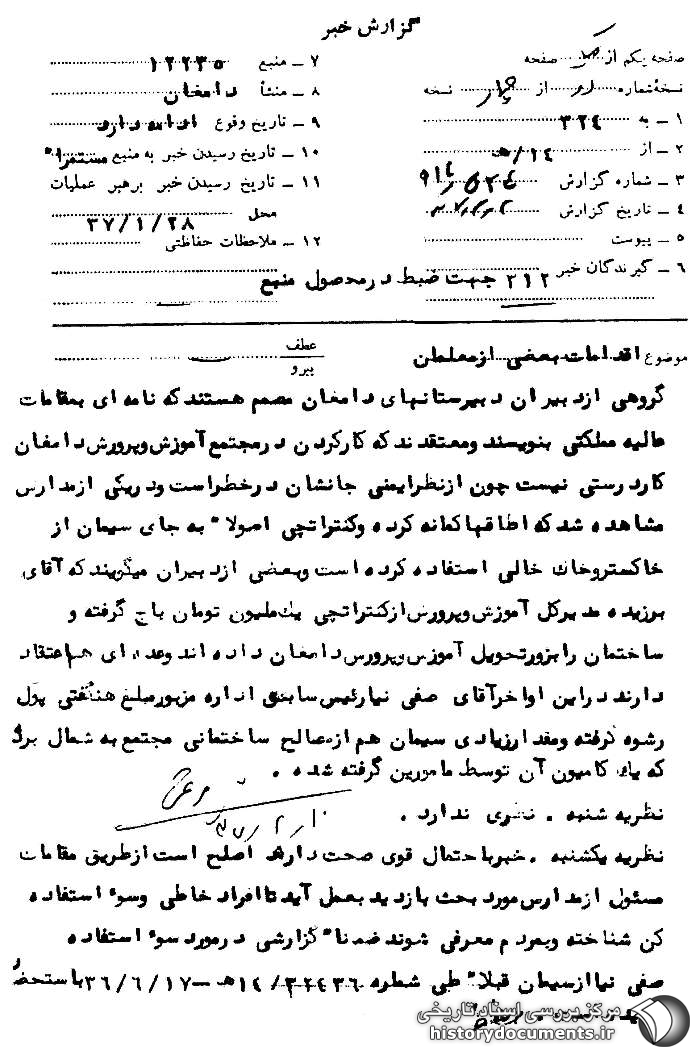 گزارش خبر
صفحه یکم از یک صفحه
نسخه شماره از چهار نسخه
۱ ـ به ۳۲٤
۲ ـ از ۱٤/هـ
۳ ـ شماره گزارش
٤ ـ تاریخ گزارش
۵ ـ پیوست
۶ ـ گیرندگان خبر ۳۱۲ جهت ضبط در محصول منبع
۷ ـ منبع ۱۲۲۳۵
۸ ـ منشأ دامغان
۹ ـ تاریخ وقوع ادامه دارد
۱۰ ـ تاریخ رسیدن خبر به منبع مستمرا"
۱۱ ـ تاریخ رسیدن خبر برهبر عملیات
محل ۳۷/۱/۲۸
۱۲ ـ ملاحظات حفاظتی
موضوع اقدامات بعضی از معلمان
عطف
پیرو
گروهی از دبیران دبیرستانهای دامغان مصمم هستند که نامه ای بمقامات
عالیه مملکتی بنویسند و معتقدند که کارکردن در مجتمع آموزش و پرورش دامغان
کار درستی نیست چون از نظر ایمنی جانشان در خطر است و در یکی از مدارس
مشاهده شد که اطاقها کمانه کرده و کنتراتچی اصولا" به جای سیمان از
خاکستر و خاك خالی استفاده کرده است و بعضی از دبیران میگویند که آقای
برزیده مدیر کل آموزش و پرورش از کنتراتچی یك ملیون تومان باج گرفته و
ساختمان را بزور تحویل آموزس و پرورس دامغان داده اند و عده ای هم اعتقاد
دارند در این اواخر آقای صفی نیا رئیس سابق اداره مزبور مبلغ هنگفتی پول
رشوه گرفته و مقدار زیادی سیمان هم از مصالح ساختمانی مجتمع به شمال برد
که یك کامیون آن توسط مامورین گرفته شده .
نظریه شنبه . نظری ندارد .
نظریه یکشنبه . خبر باحتمال قوی صحت دارد اصلح است از طریق مقامات
مسئول از مدارس مورد بحث بازدید بعمل آید تا افراد خاطی و سوء استفاده
کن شناخته و بمردم معرفی شوند ضمنا" گزارشی در مورد سوء استفاده
صفی نیا از سیمان قبلا" طی شماره ۳۲٤۳۶/۱٤هـ ـ ۳۶/۶/۱۷ باستحضار
مرکز بررسی اسناد تاریخی
historydocuments.ir